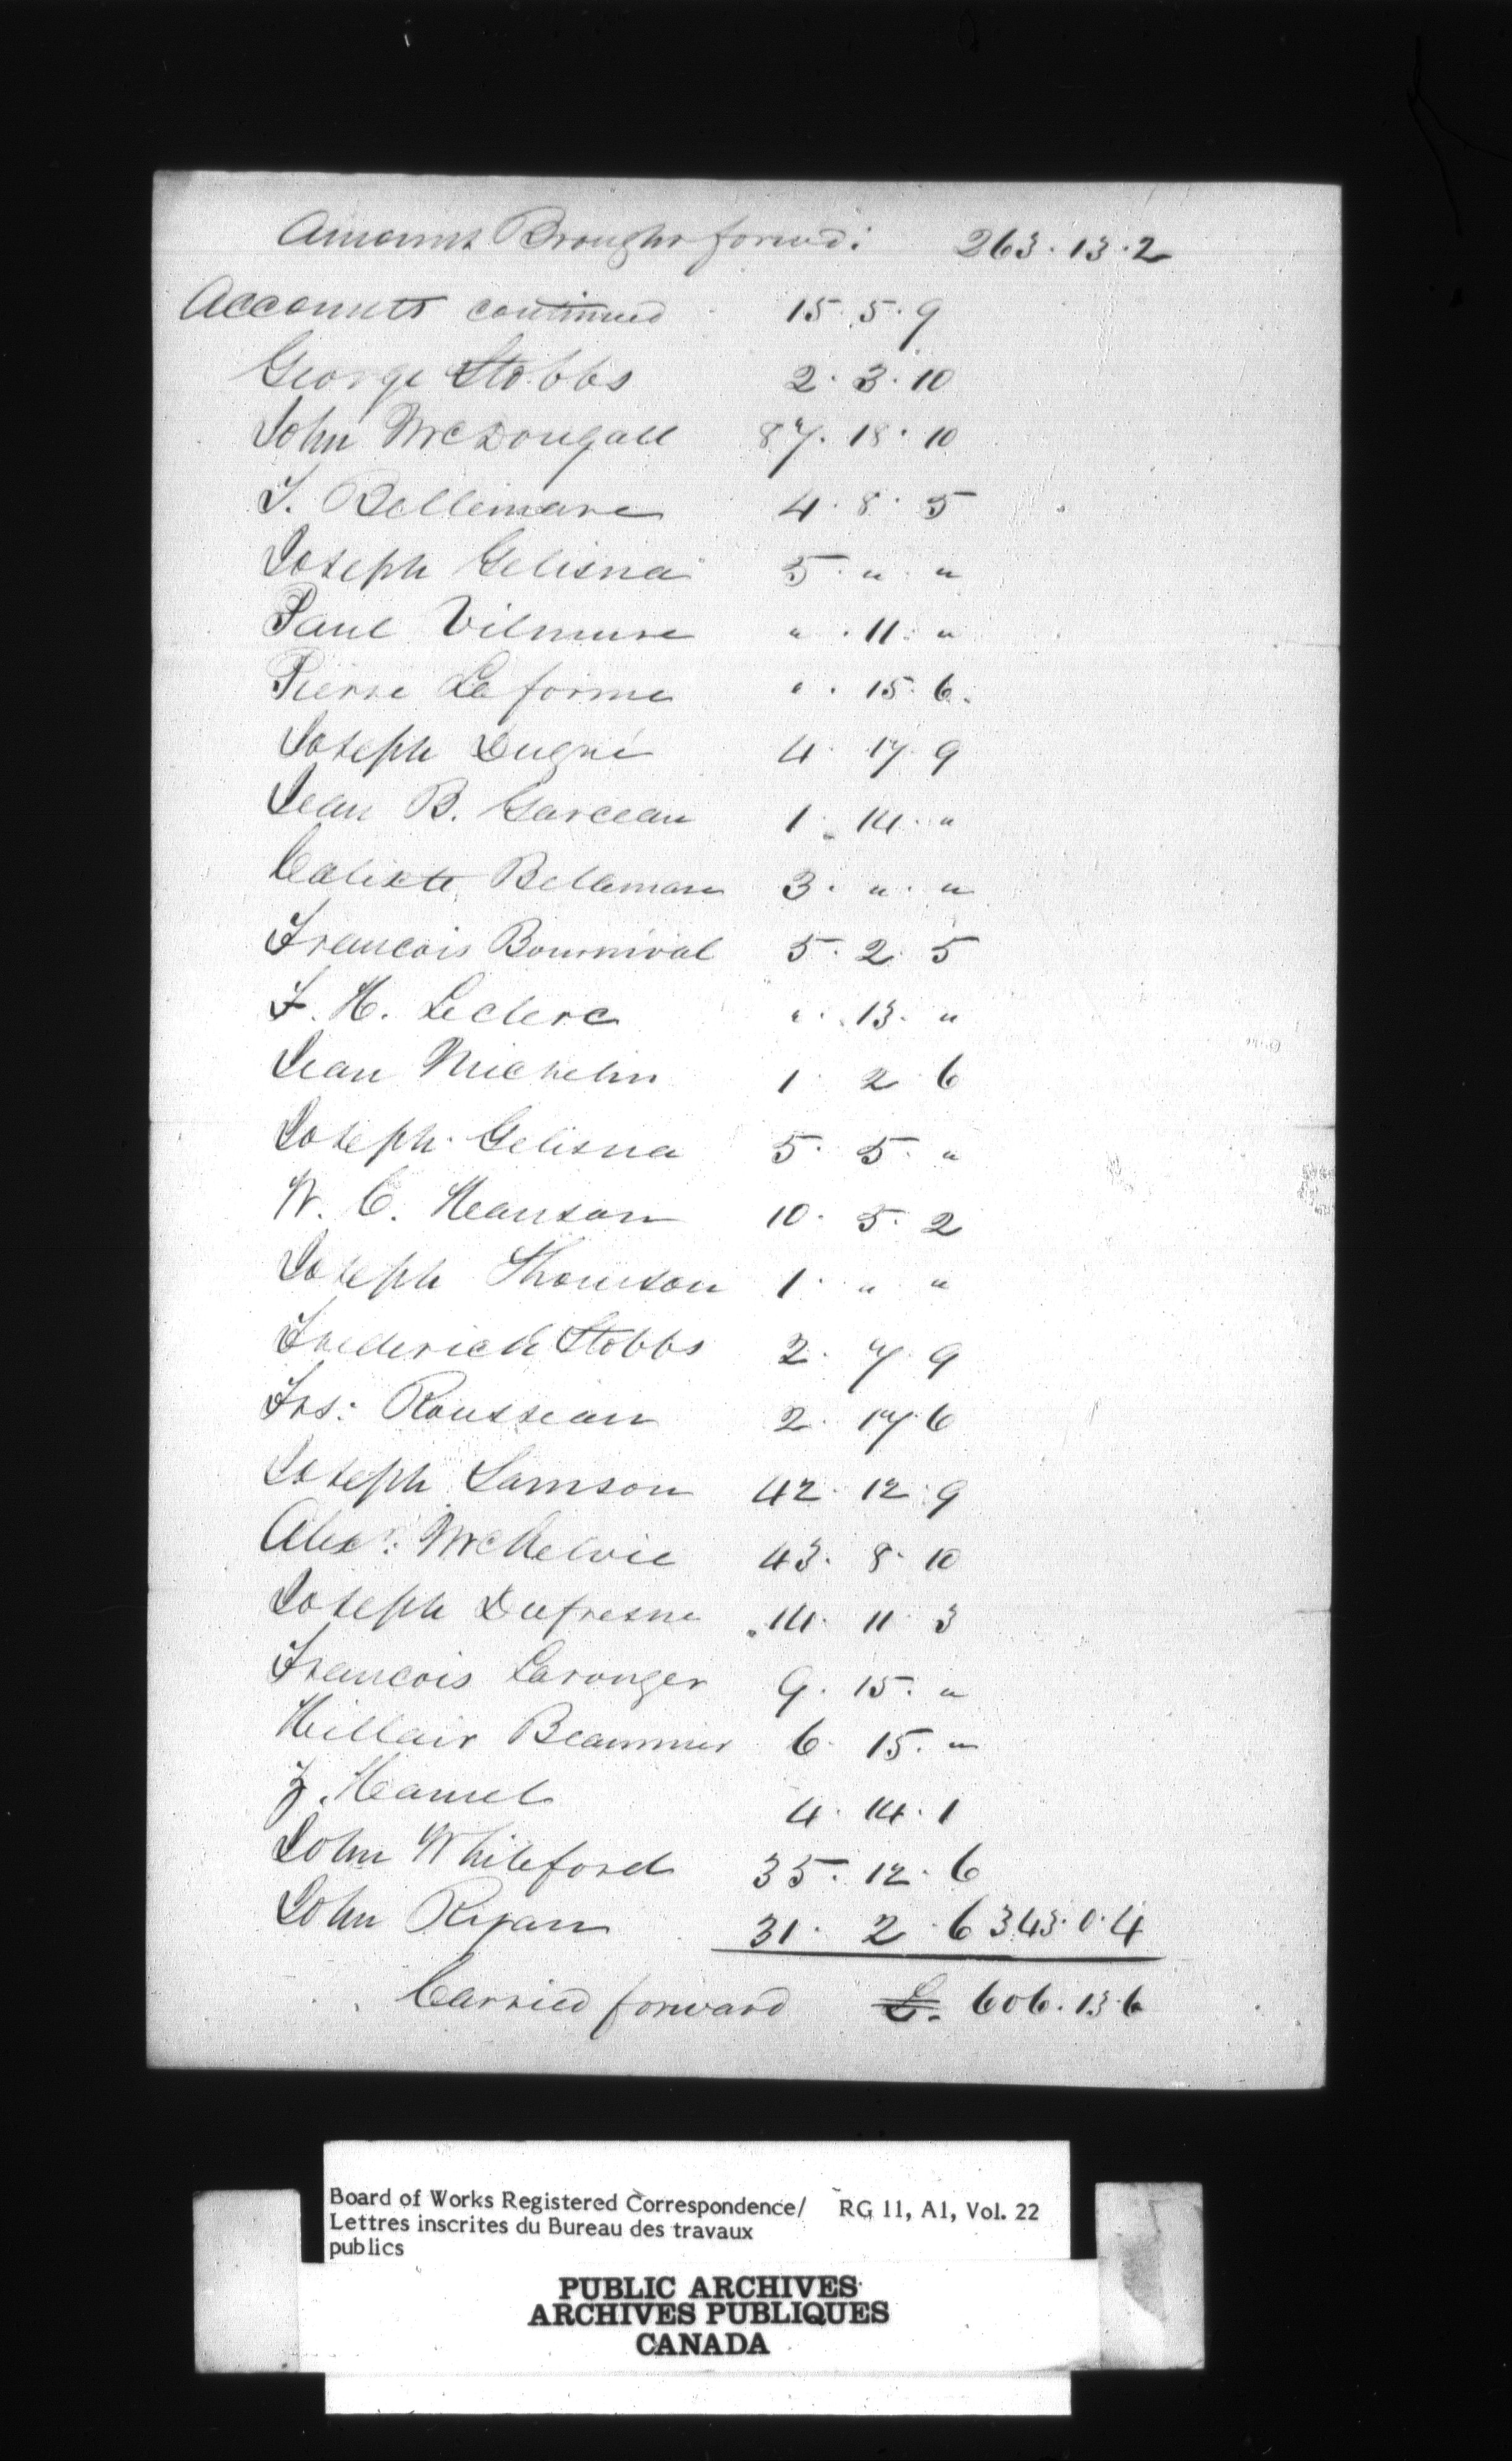 Amount Brought forwd: 263. 13. 2
Accounts continued 15. 5. 9
George Stobbs 2. 3. 10
John McDougall 87. 18. 10
F. Bellemare 4. 8. 5
Joseph Gelisna 5. " "
Paul Vilmure " . 11. "
Pierre Laforme " . 15. 6.
Joseph Dugré 4. 17. 9
Jean B. Garceau 1. 14. "
Calixte Bellemare 3. " . "
Francois Bournival 5. 2. 5
F. H. Leclerc " . 13. "
Jean Michelin 1. 2. 6
Joseph Gelisna 5. 5. "
W. C. Hanson 10. 5. 2
Joseph Thomson 1. " "
Frederick Stobbs 2. 7. 9
Frs: Rousseau 2. 17. 6
Joseph Lamson 42. 12. 9
Alexr: McKelvie 43. 8. 10
Joseph Dufresne 14. 11. 3
Francois Laronger 9. 15. "
Hillair Beaumier 6. 15. "
Z. Hamel 4. 14. 1
John Whiteford 35. 12. 6
John Ryan 31. 2. 6 343. 0. 4
Carried forward £. 606. 13. 6
Board of Works Registered Correspondence/ RG 11, A1, Vol. 22
Lettres inscrites du Bureau des travaux
publics
PUBLIC ARCHIVES
ARCHIVES PUBLIQUES
CANADA